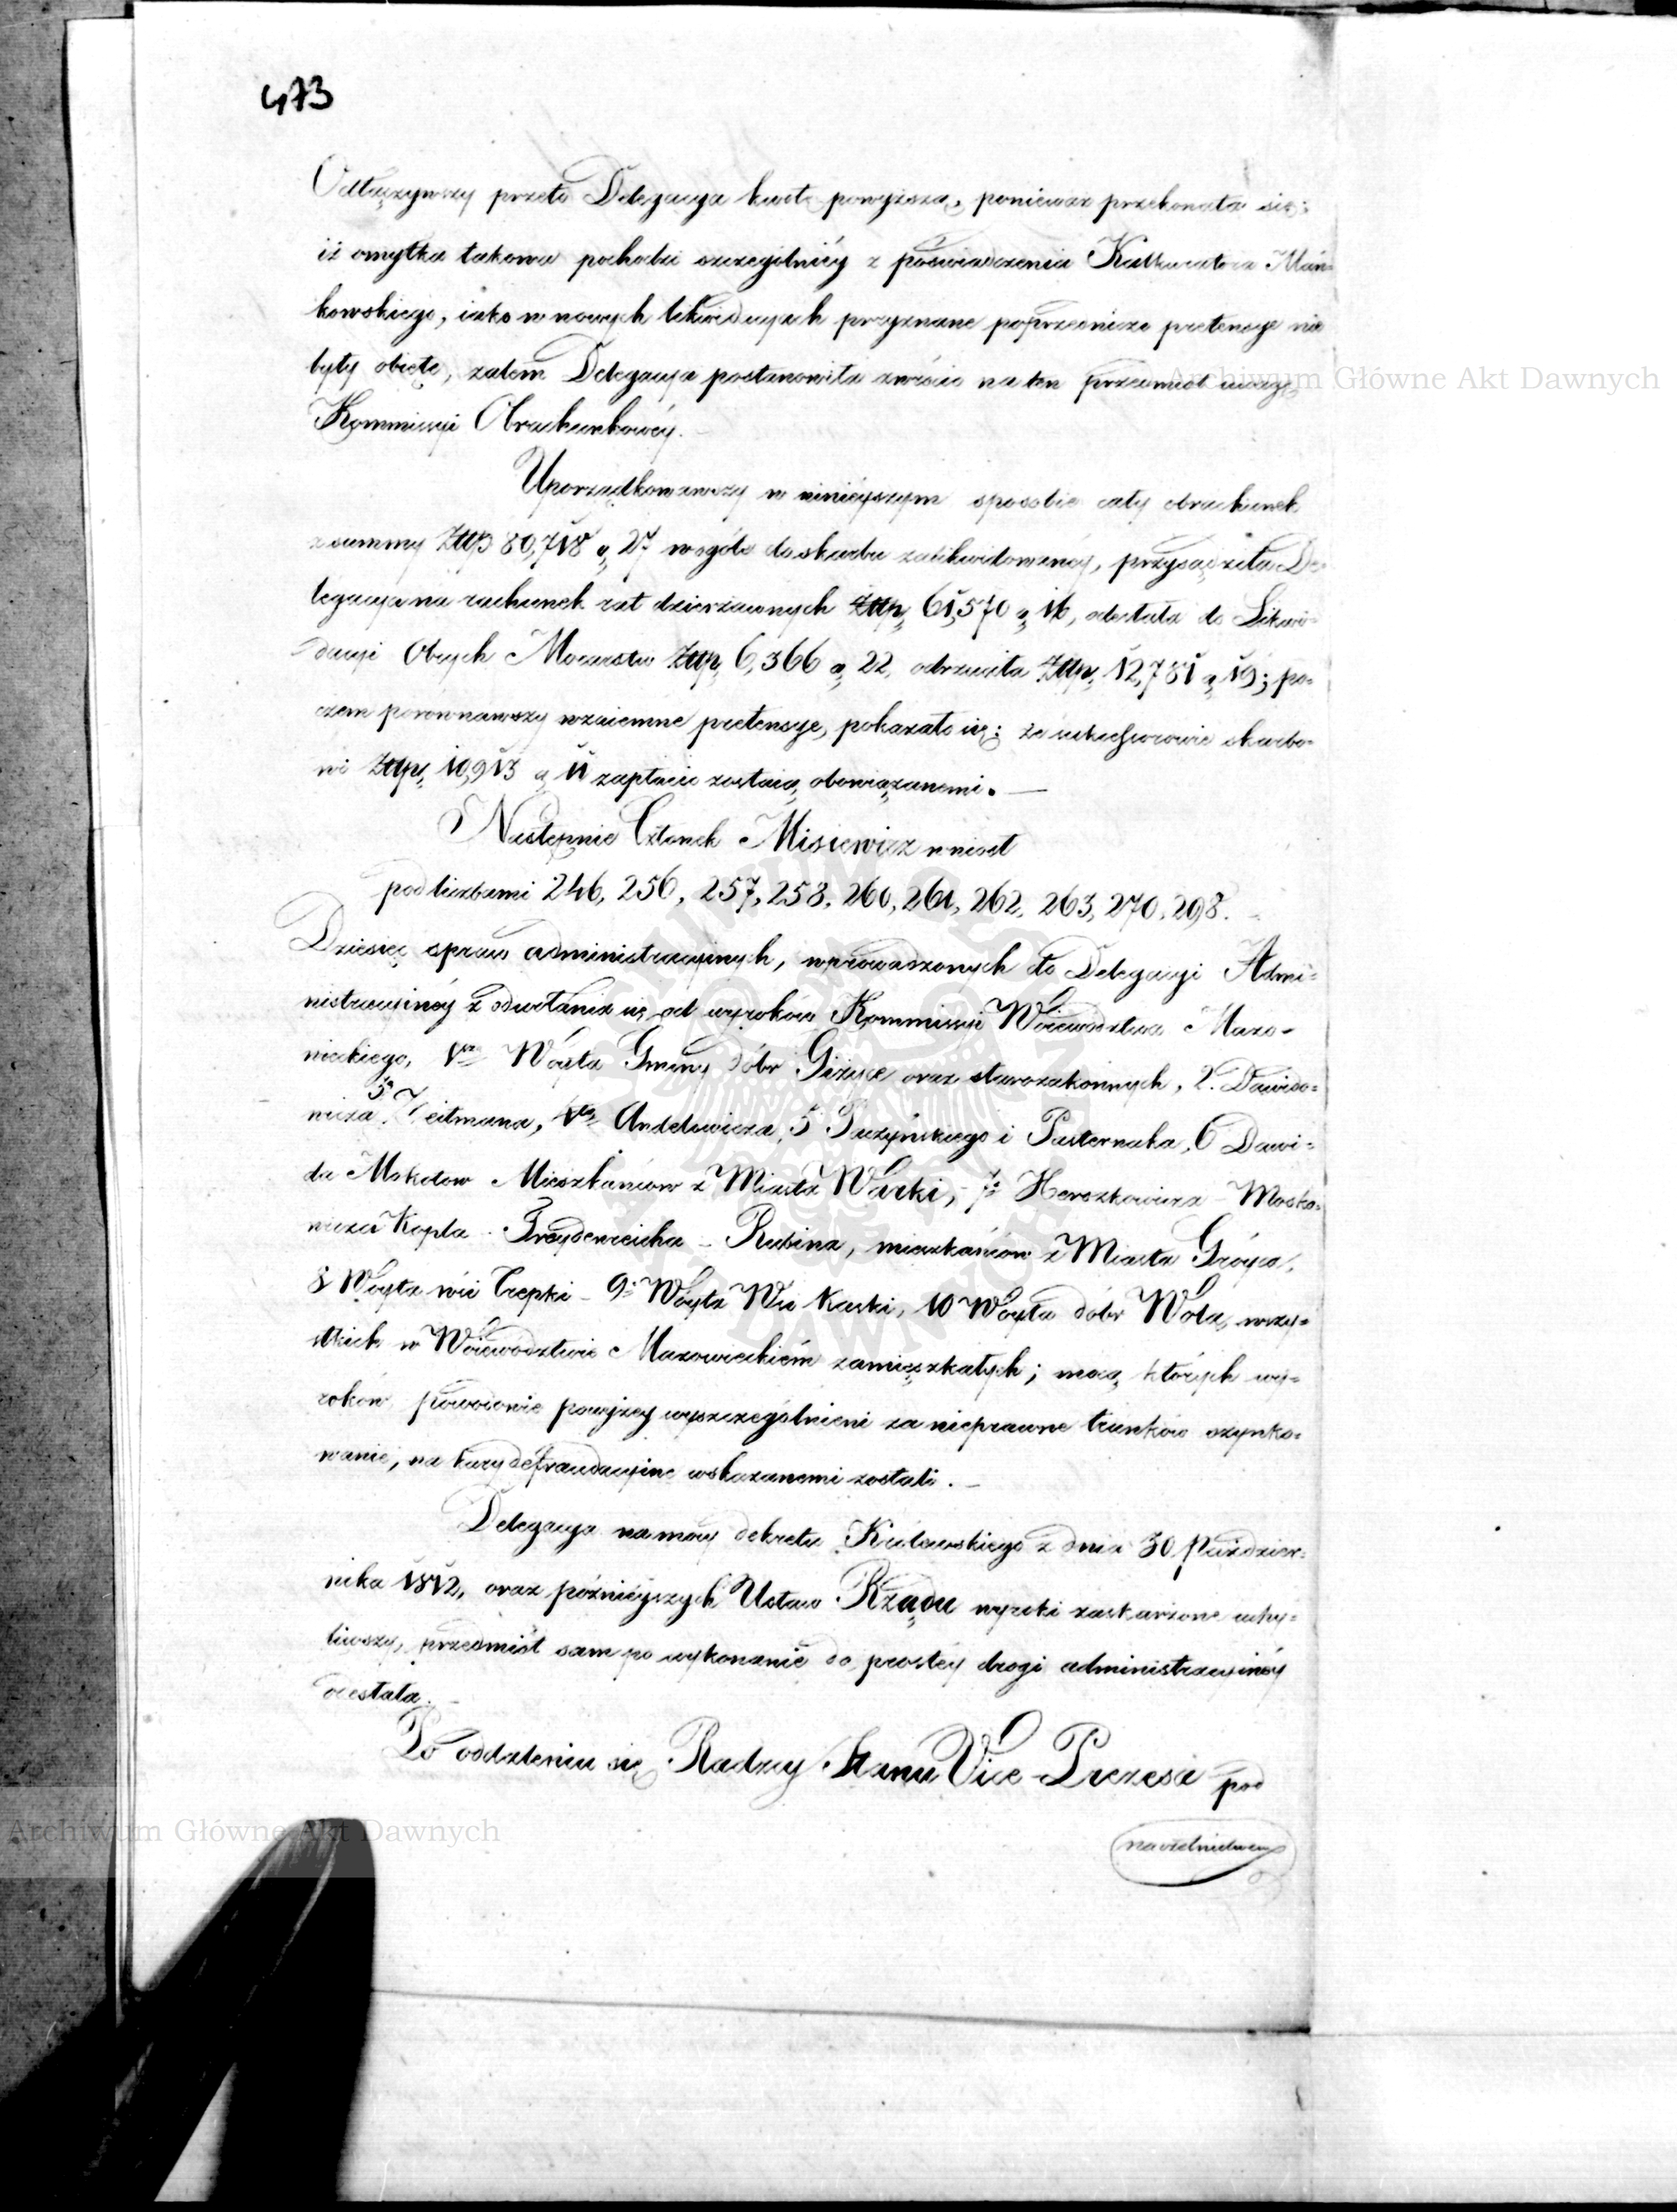 473
Odłączywszy przeto Delegacya kwotę powyższą, ponieważ przekonała się;
iż omyłka takowa pochodzi szczególniéy z poświadczenia Kalkulatora Mań=
kowskiego, iako w nowych likwidacyach przyznane poprzedniczo pretensye nie
były obięte, zatem Delegacya postanowiła zwrócić na ten przedmiot uwagę
Kommissyi Obrachunkowéy.
Uporządkowawszy w ninieyszym sposobie cały obrachunek
z summy Złtp 80,718 g, 27 w ogóle do skarbu zalikwidowanéy, przysądziła De=
legacya na rachunek rat dzierżawnych Złtp, 61,570 g, 16, odesłała do Likwi=
dacyi Obcych Mocarstw Złtp, 6,366 g, 22, odrzuciła Złtp, 12,781 g, 19; po=
czem porównawszy wzaiemne pretensye, pokazało się; że sukcessorowie skarbo=
wi Złtp, 10,913 g, 11 zapłacić zostaią obowiązanemi. —
Następnie Członek Misiewicz wniosł
pod liczbami 246, 256, 257, 258, 260, 261, 262, 263, 270, 298.
Dziesięć spraw administracyinych, wprowadzonych do Delegacyi Admi=
nistracyinéy z odwołania się od wyroków Kommissyi Woiewództwa Mazo=
wieckiego, 1mo Wóyta Gminy dóbr Giżyce oraz starozakonnych, 2. Dawido=
wicza, 3o Zeitmana, 4to Andelowicza, 5 Puzyńskiego i Pasternaka, 6 Dawi=
da Mokotow Mieszkańców z Miasta Warki, 7o Herszkowicza – Moszko=
wicza Kopla – Freydenreicha – Rubina, mieszkańców z Miasta Gróyca,
8 Wóyta wsi Czepki – 9o Wóyta Wsi Kaski, 10 Wóyta dóbr Wola, wszy=
stkich w Woiewództwie Mazowieckiém zamieszkałych; mocą których wy=
roków powodowie powyżey wyszczególnieni za nieprawne trunków szynko=
wanie, na kary defraudacyine wskazanemi zostali. —
Delegacya na mocy dekretu Królewskiego z dnia 30 Paździer=
nika 1812, oraz późnieyszych Ustaw Rządu wyroki zaskarżone uchy=
liwszy, przedmiot sam po wykonanie do prostéy drogi administracyinéy
odesłała. —
Po oddaleniu się Radzcy Stanu Vice-Prezesa pod
Archiwum Główne Akt Dawnych
Archiwum Główne Akt Dawnych